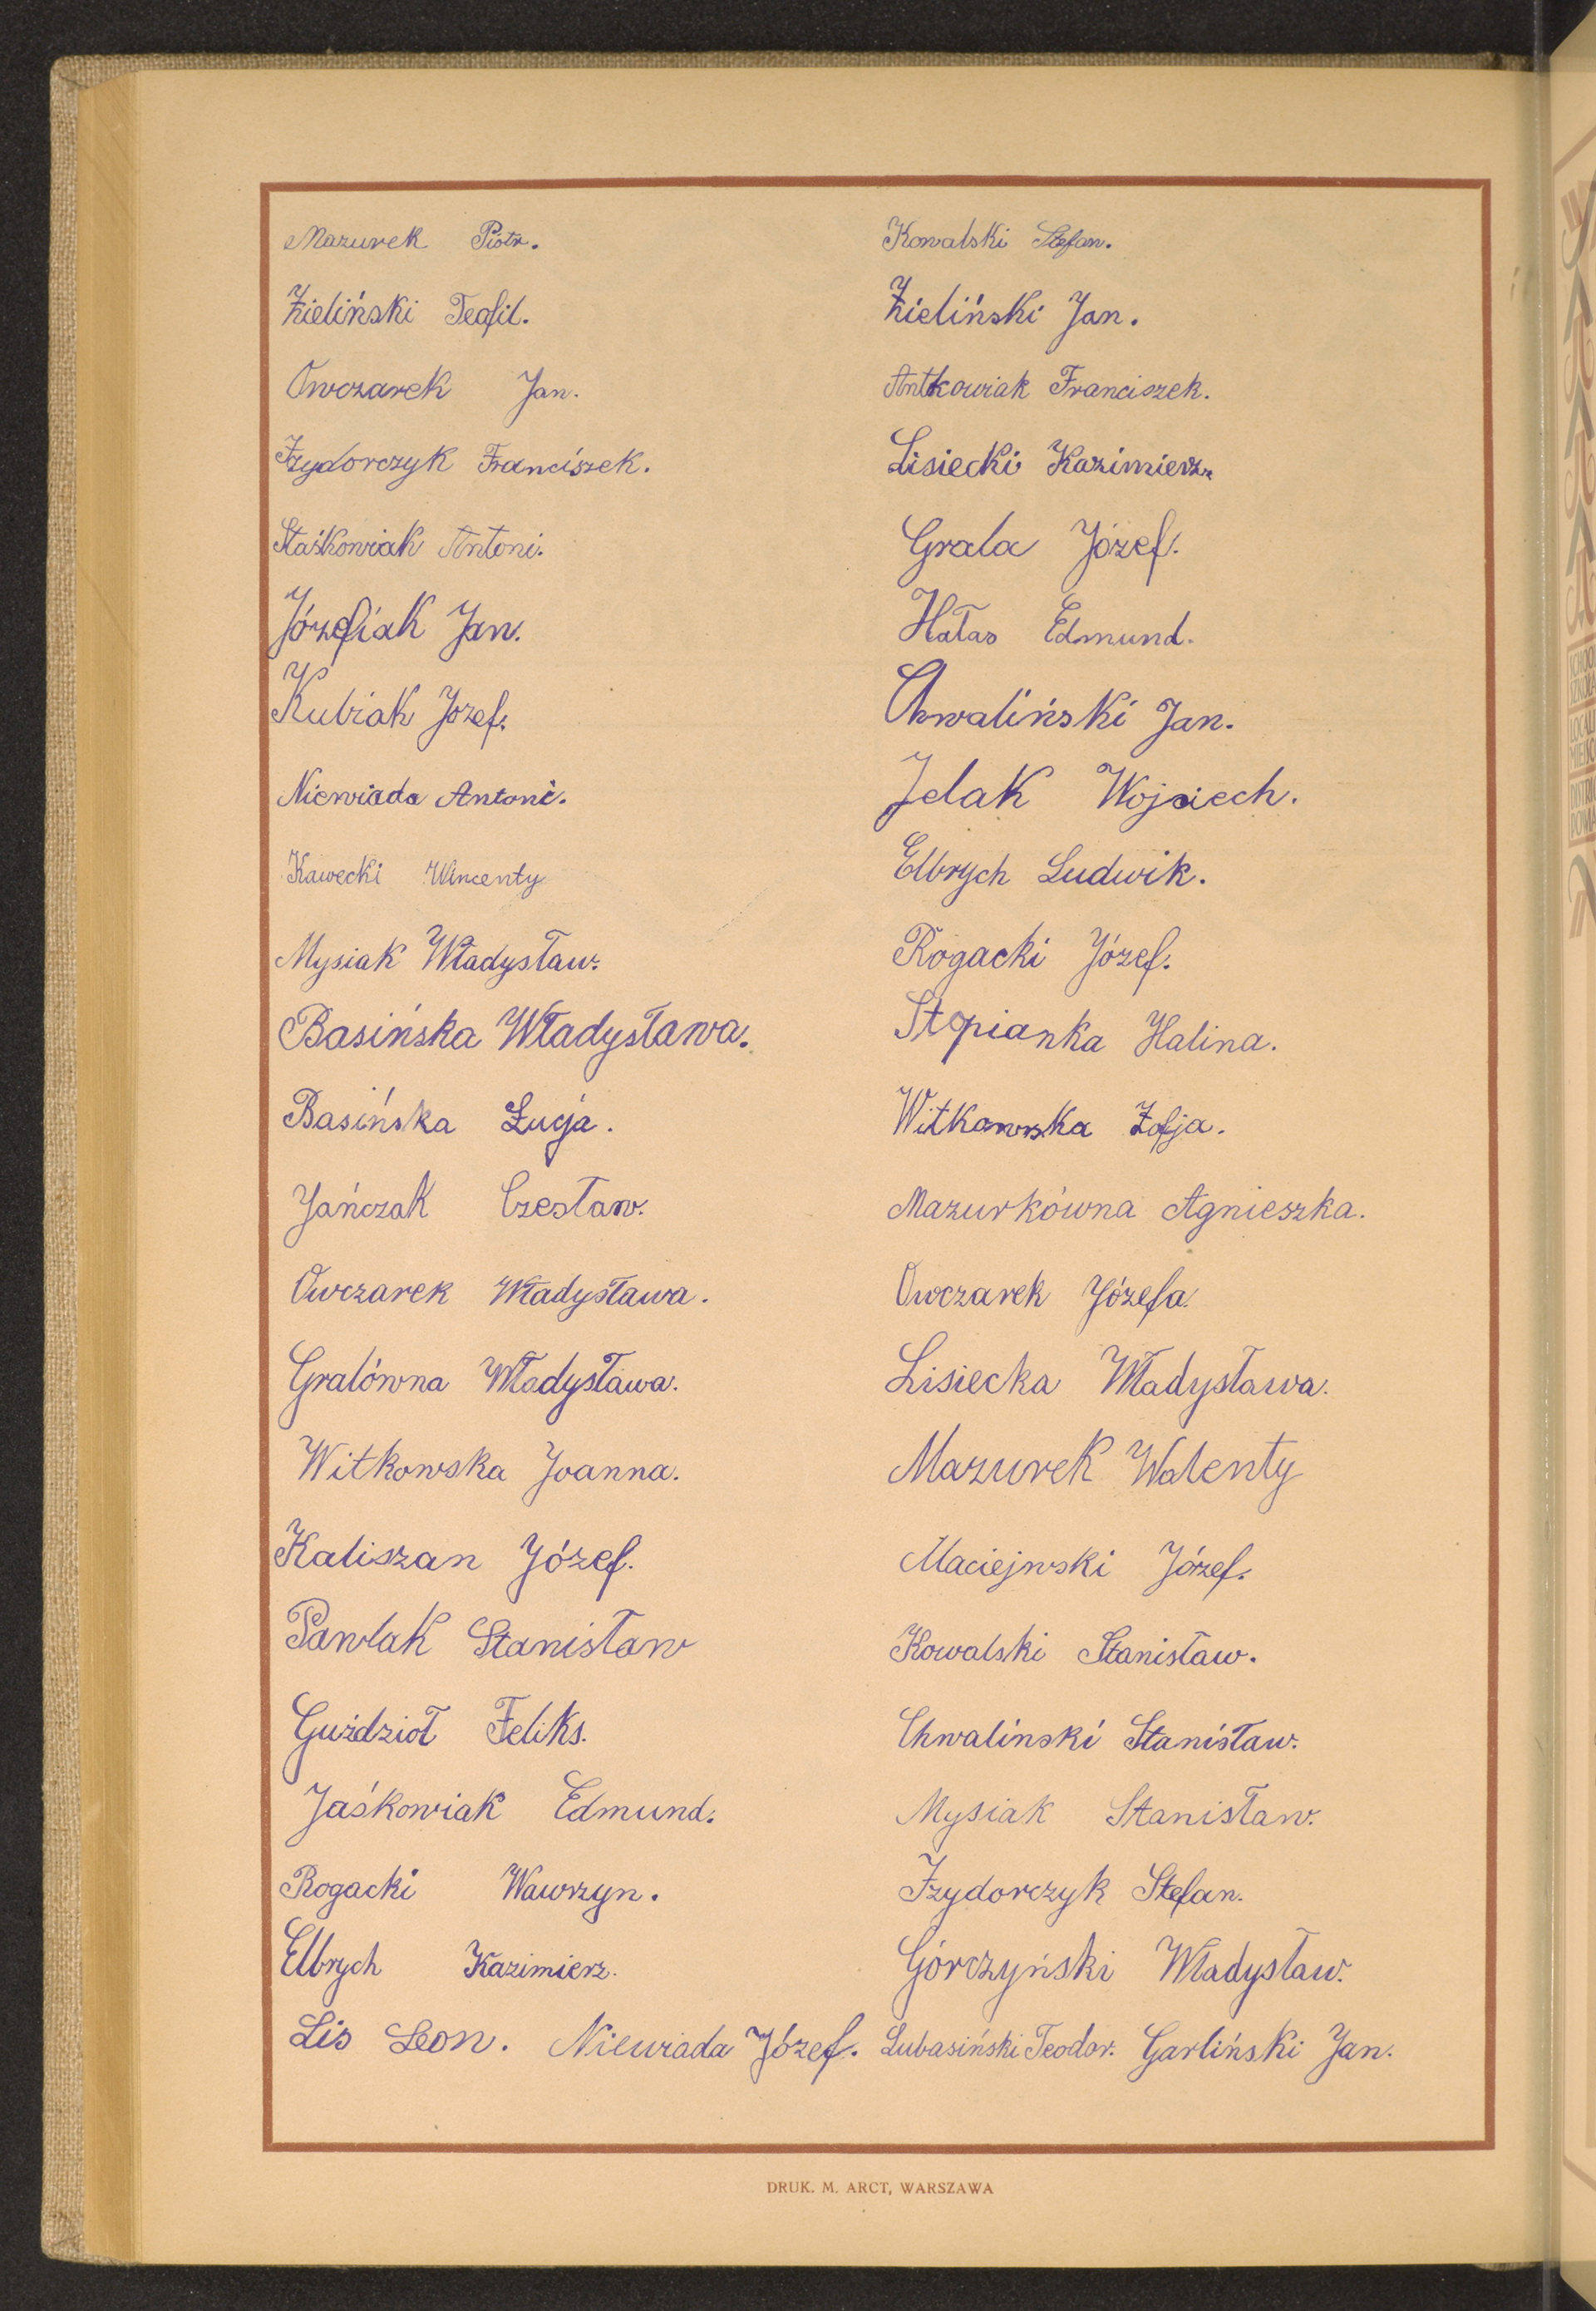 Mazurek Piotr.
Zieliński Teofil.
Owczarek Jan.
Izydorczyk Franciszek.
Staśkowiak Antoni.
Józefiak Jan.
Kubiak Józef.
Niewiada Antoni.
Kawecki Wincenty
Mysiak Władysław.
Basińska Władysława.
Basińska Łucja.
Jańczak Czesław.
Owczarek Władysława.
Gralówna Władysława.
Witkowska Joanna.
Kaliszan Józef.
Pawlak Stanisław
Guździoł Feliks.
Jaśkowiak Edmund.
Rogacki Wawrzyn.
Elbrych Kazimierz.
Lis Leon. Niewiada Józef.
Kowalski Stefan.
Zieliński Jan.
Antkowiak Franciszek.
Lisiecki Kazimierz.
Grala Józef.
Hałas Edmund.
Chwaliński Jan.
Jelak Wojciech.
Elbrych Ludwik.
Rogacki Józef.
Halina.
Witkowska Zofja.
Mazurkówna Agnieszka.
Owczarek Józefa.
Lisiecka Władysława.
Mazurek Walenty
Maciejwski Józef.
Kowalski Stanisław.
Chwalinski Stanisław.
Mysiak Stanisław.
Izydorczyk Stefan.
Górczyński Władysław.
Lubasiński Teodor. Garliński Jan.
DRUK. M. ARCT, WARSZAWA